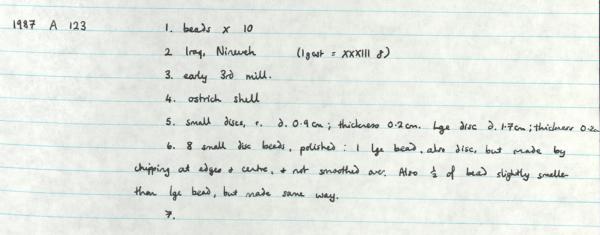 1987 A 123 1. beads x 10
2 Iraq, Nineveh (1 gast = XXXIII 8)
3. early 3rd mill.
4. ostrich shell
5. small discs, c. d. 0.9cm; thickness 0.2cm. Lge disc d. 1.7cm; thickness 0.2c
6. 8 small disc beads, polished : 1 lge bead, also disc, but made by
chipping at edges & centre, & not smoothed over. Also ½ of bead slightly smaller
than lge bead, but made same way.
7.